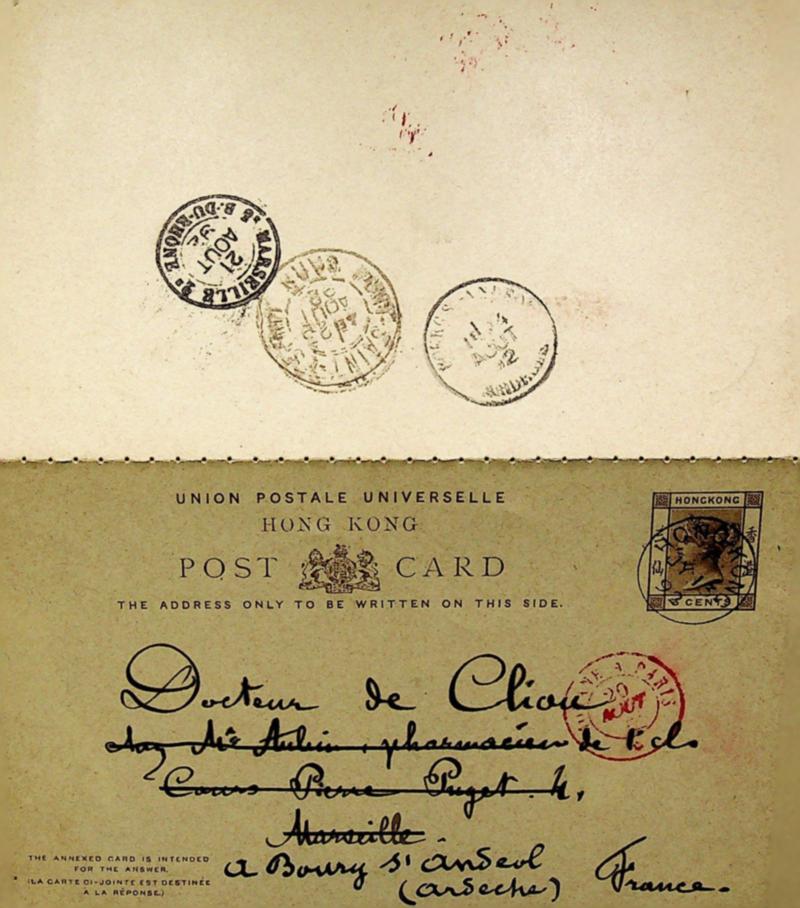 MARSEILLE
B.-DU-RHÔNE
21
AOUT
92
AOUT
92
AOUT
92
UNION POSTALE UNIVERSELLE
HONG KONG
POST CARD
THE ADDRESS ONLY TO BE WRITTEN ON THIS SIDE.
HONGKONG
CENTS
A PARIS
20
AOUT
Docteur de Cliou
pharmacien de
Cours Pierre Puget 4,
Marseille.
a Bourg St Andeol
(Ardèche) France.
THE ANNEXED CARD IS INTENDED
FOR THE ANSWER.
(LA CARTE CI-JOINTE EST DESTINÉE
À LA RÉPONSE.)